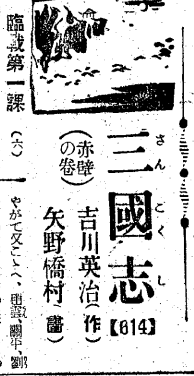 三國志
さんごくし
【614】
(赤壁の卷)
吉川英治(作)
矢野橋村(畫)
臨戰第一課
(六)
やがて又